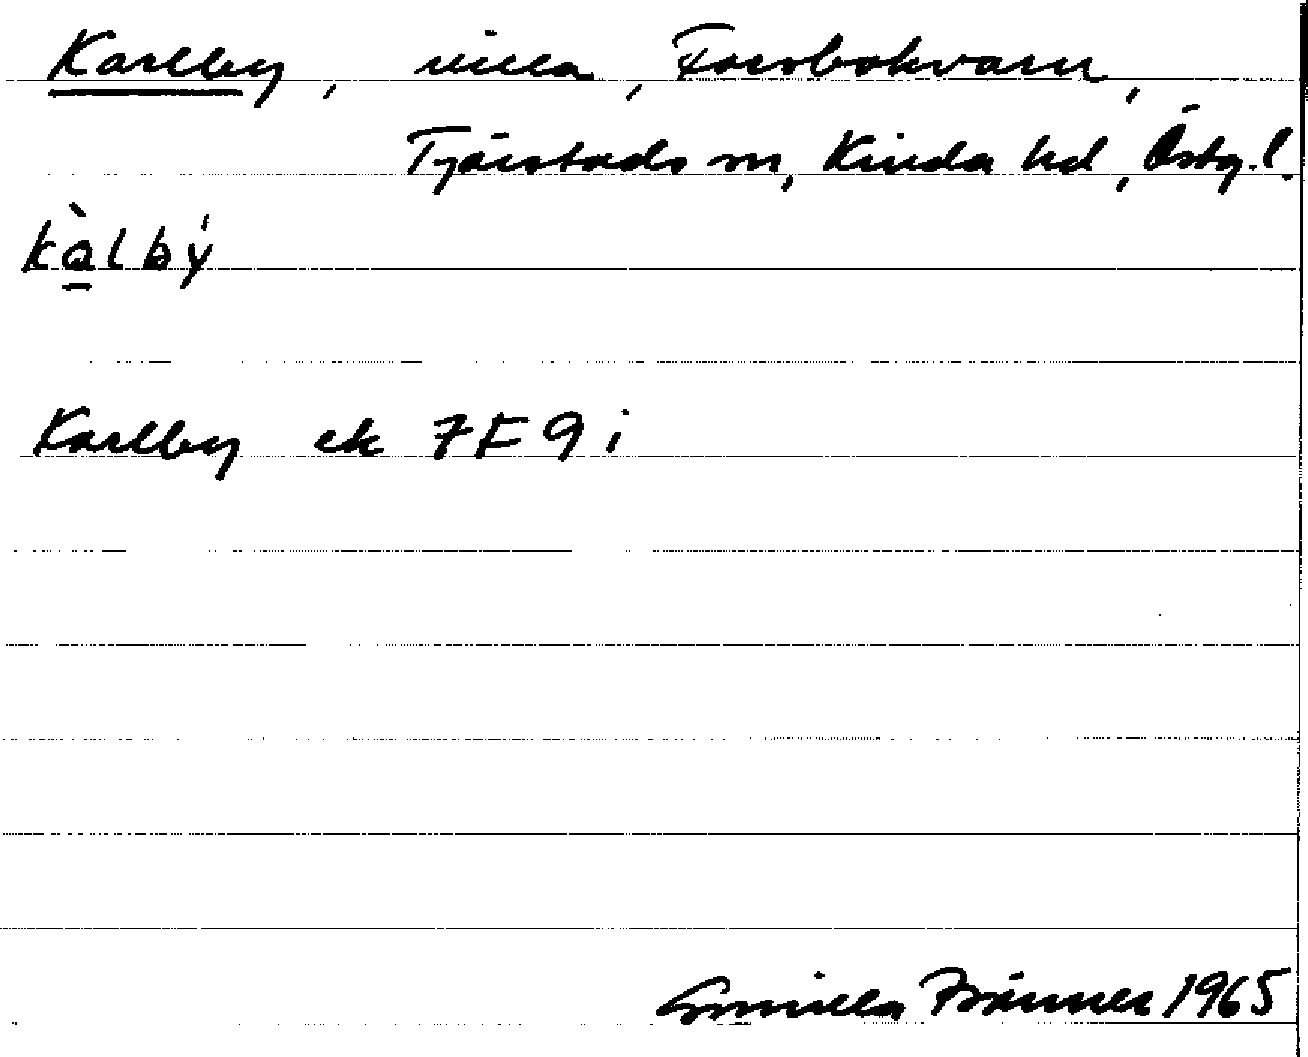 Karlby, villa, Forsbokvarn,
Tjärstads sn, Kinda hd, Östg.l.
kàlbý
Karlby ek 7F9i
Gunilla 1965